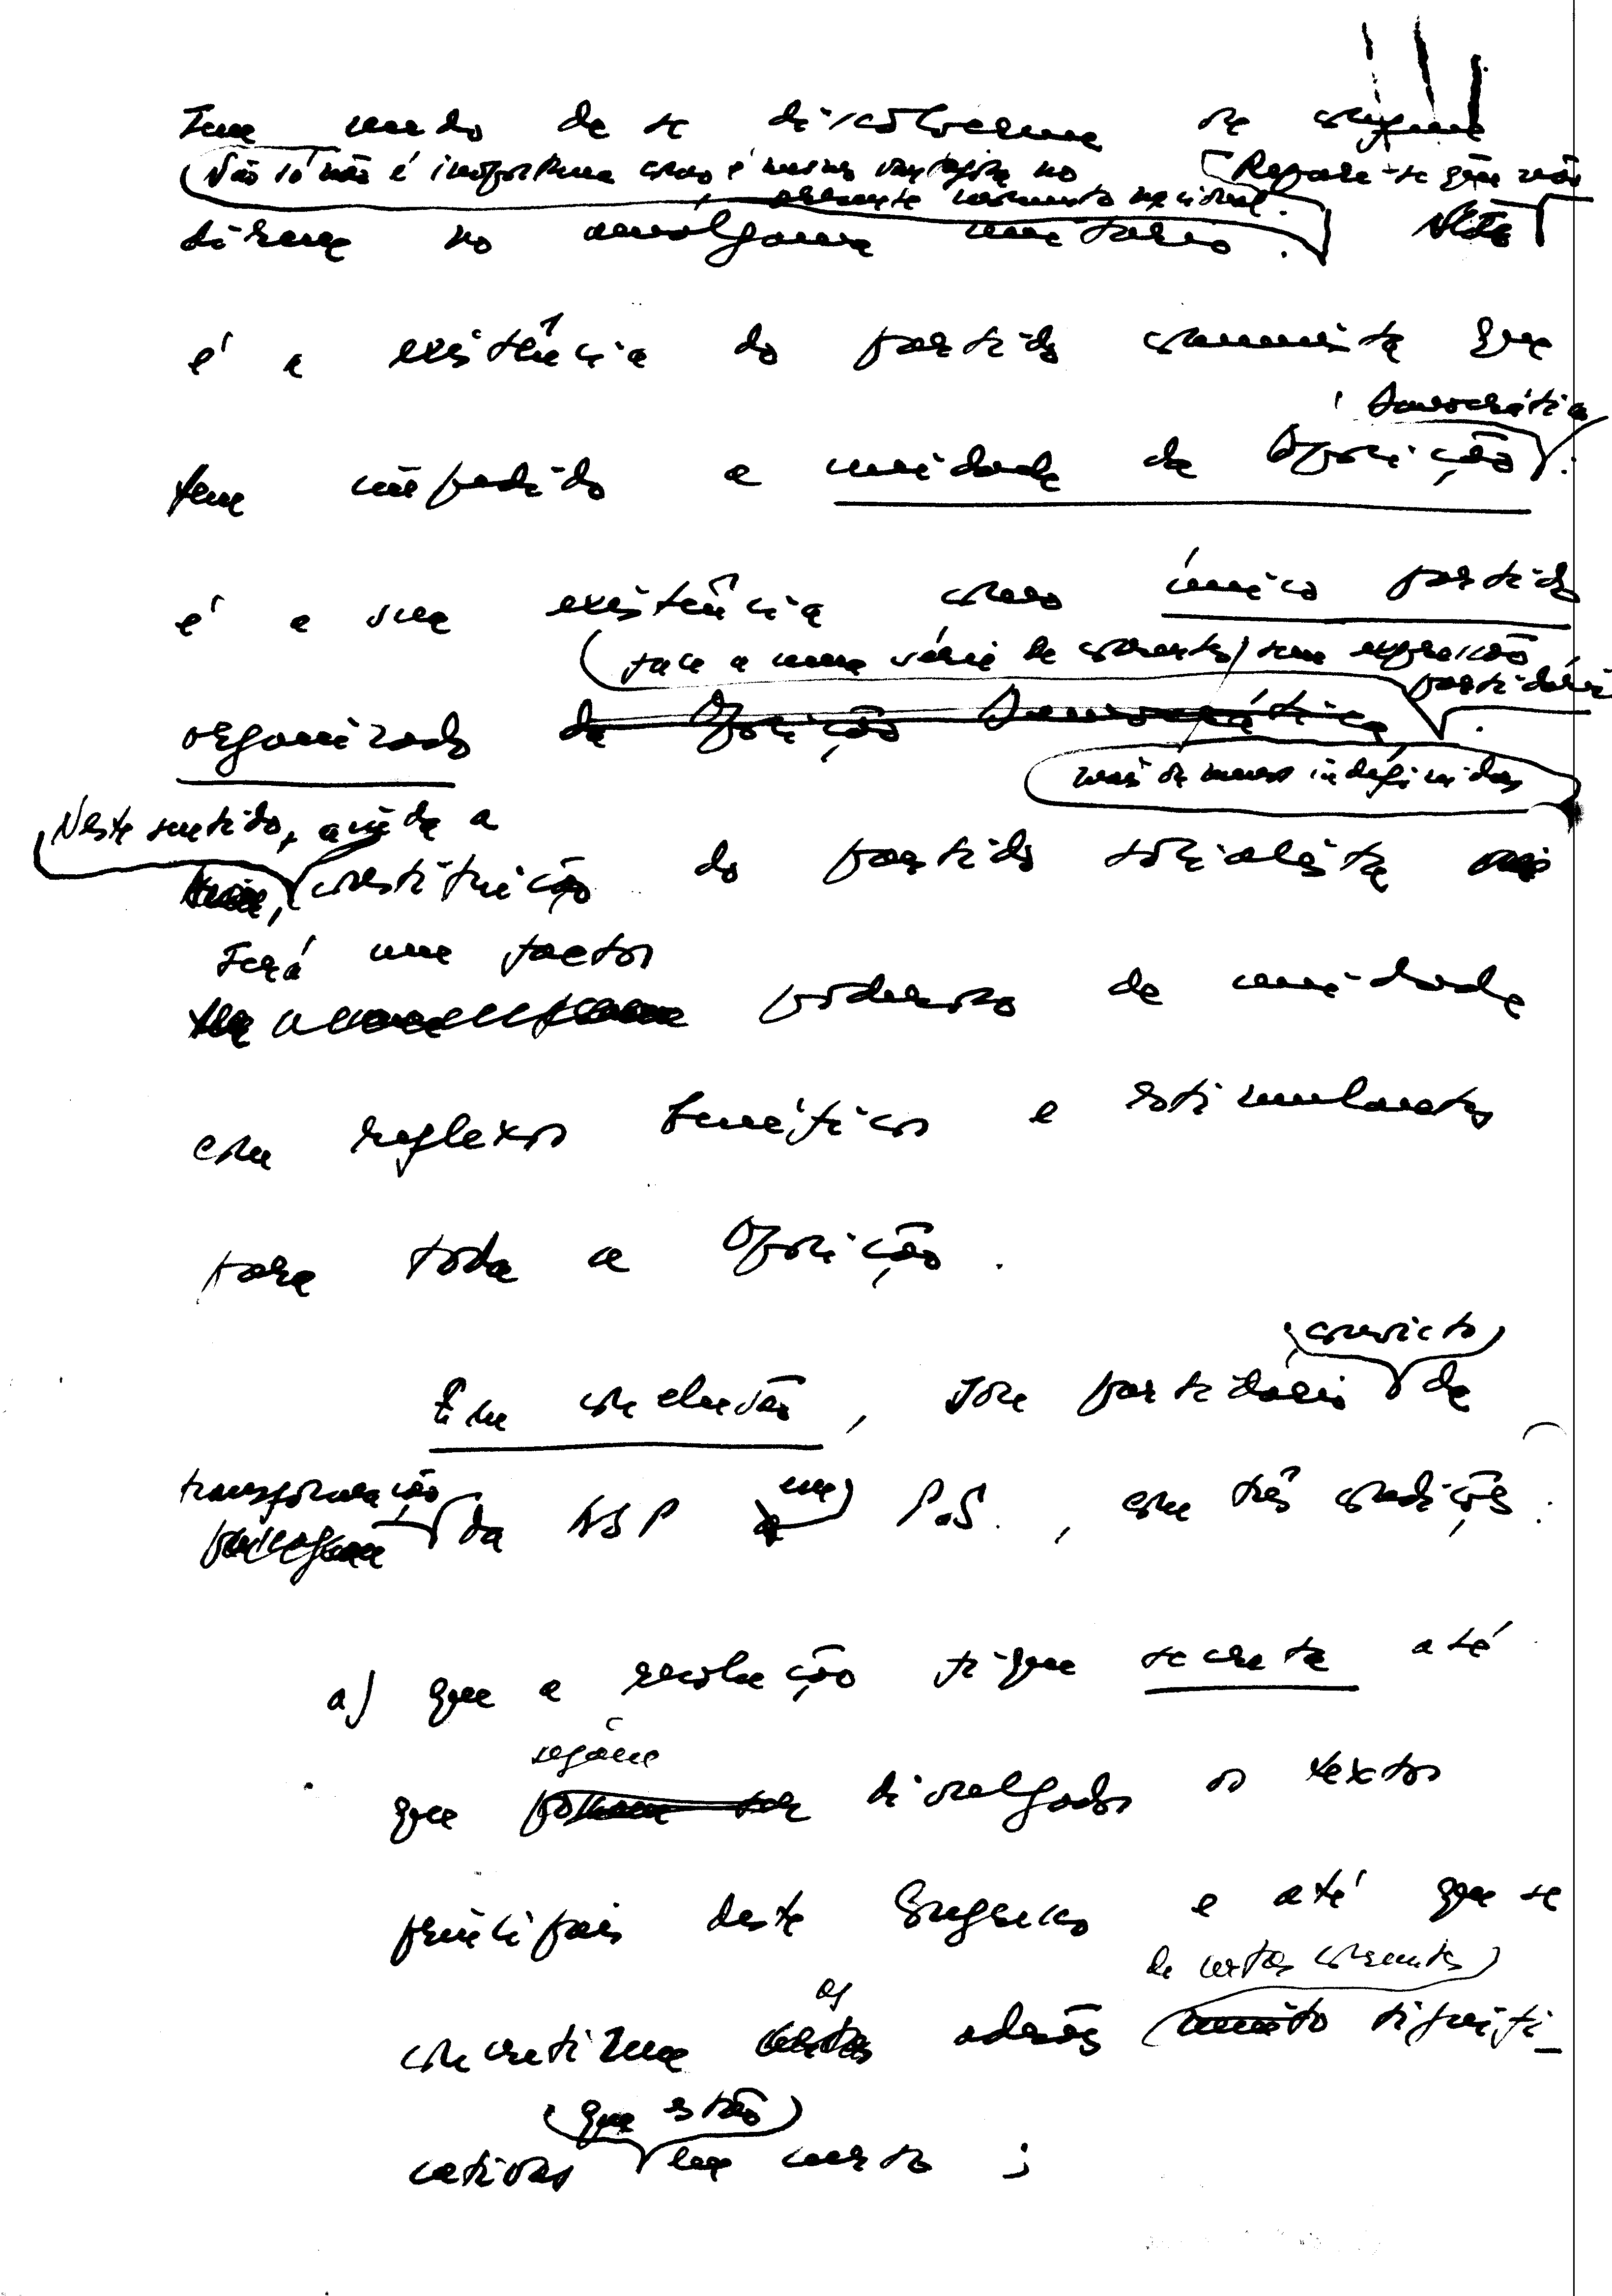 Tem medo de se dissolverem ou confun-
(Não só não é inoportuna como é mesmo no
presente momento nacional.
[Repare-se que não
direm no amálgama unitário.
é a existência do partido comunista que
Democrática
tem impedido a unidade da Oposição:
é a sua existência como único partido
(face a uma série de correntes sem expressão
partidária
organizado da Oposição Democrática.
mais ou menos indefinidas
Neste sentido, ainda a
constituição do partido socialista
Será um factor
poderoso de unidade
com reflexos benéficos e estimulantes
para toda a Oposição.
(convicto)
Em conclusão, sou partidário da
transformação
da ASP em P.S., com três condições:
a) que a resolução fique secreta até
sejam
que possam ser divulgados os textos
principais deste Congresso e até que se
de certas correntes)
as
concretizem certas adesões muito signifi-
(que estão)
cativas em curso;